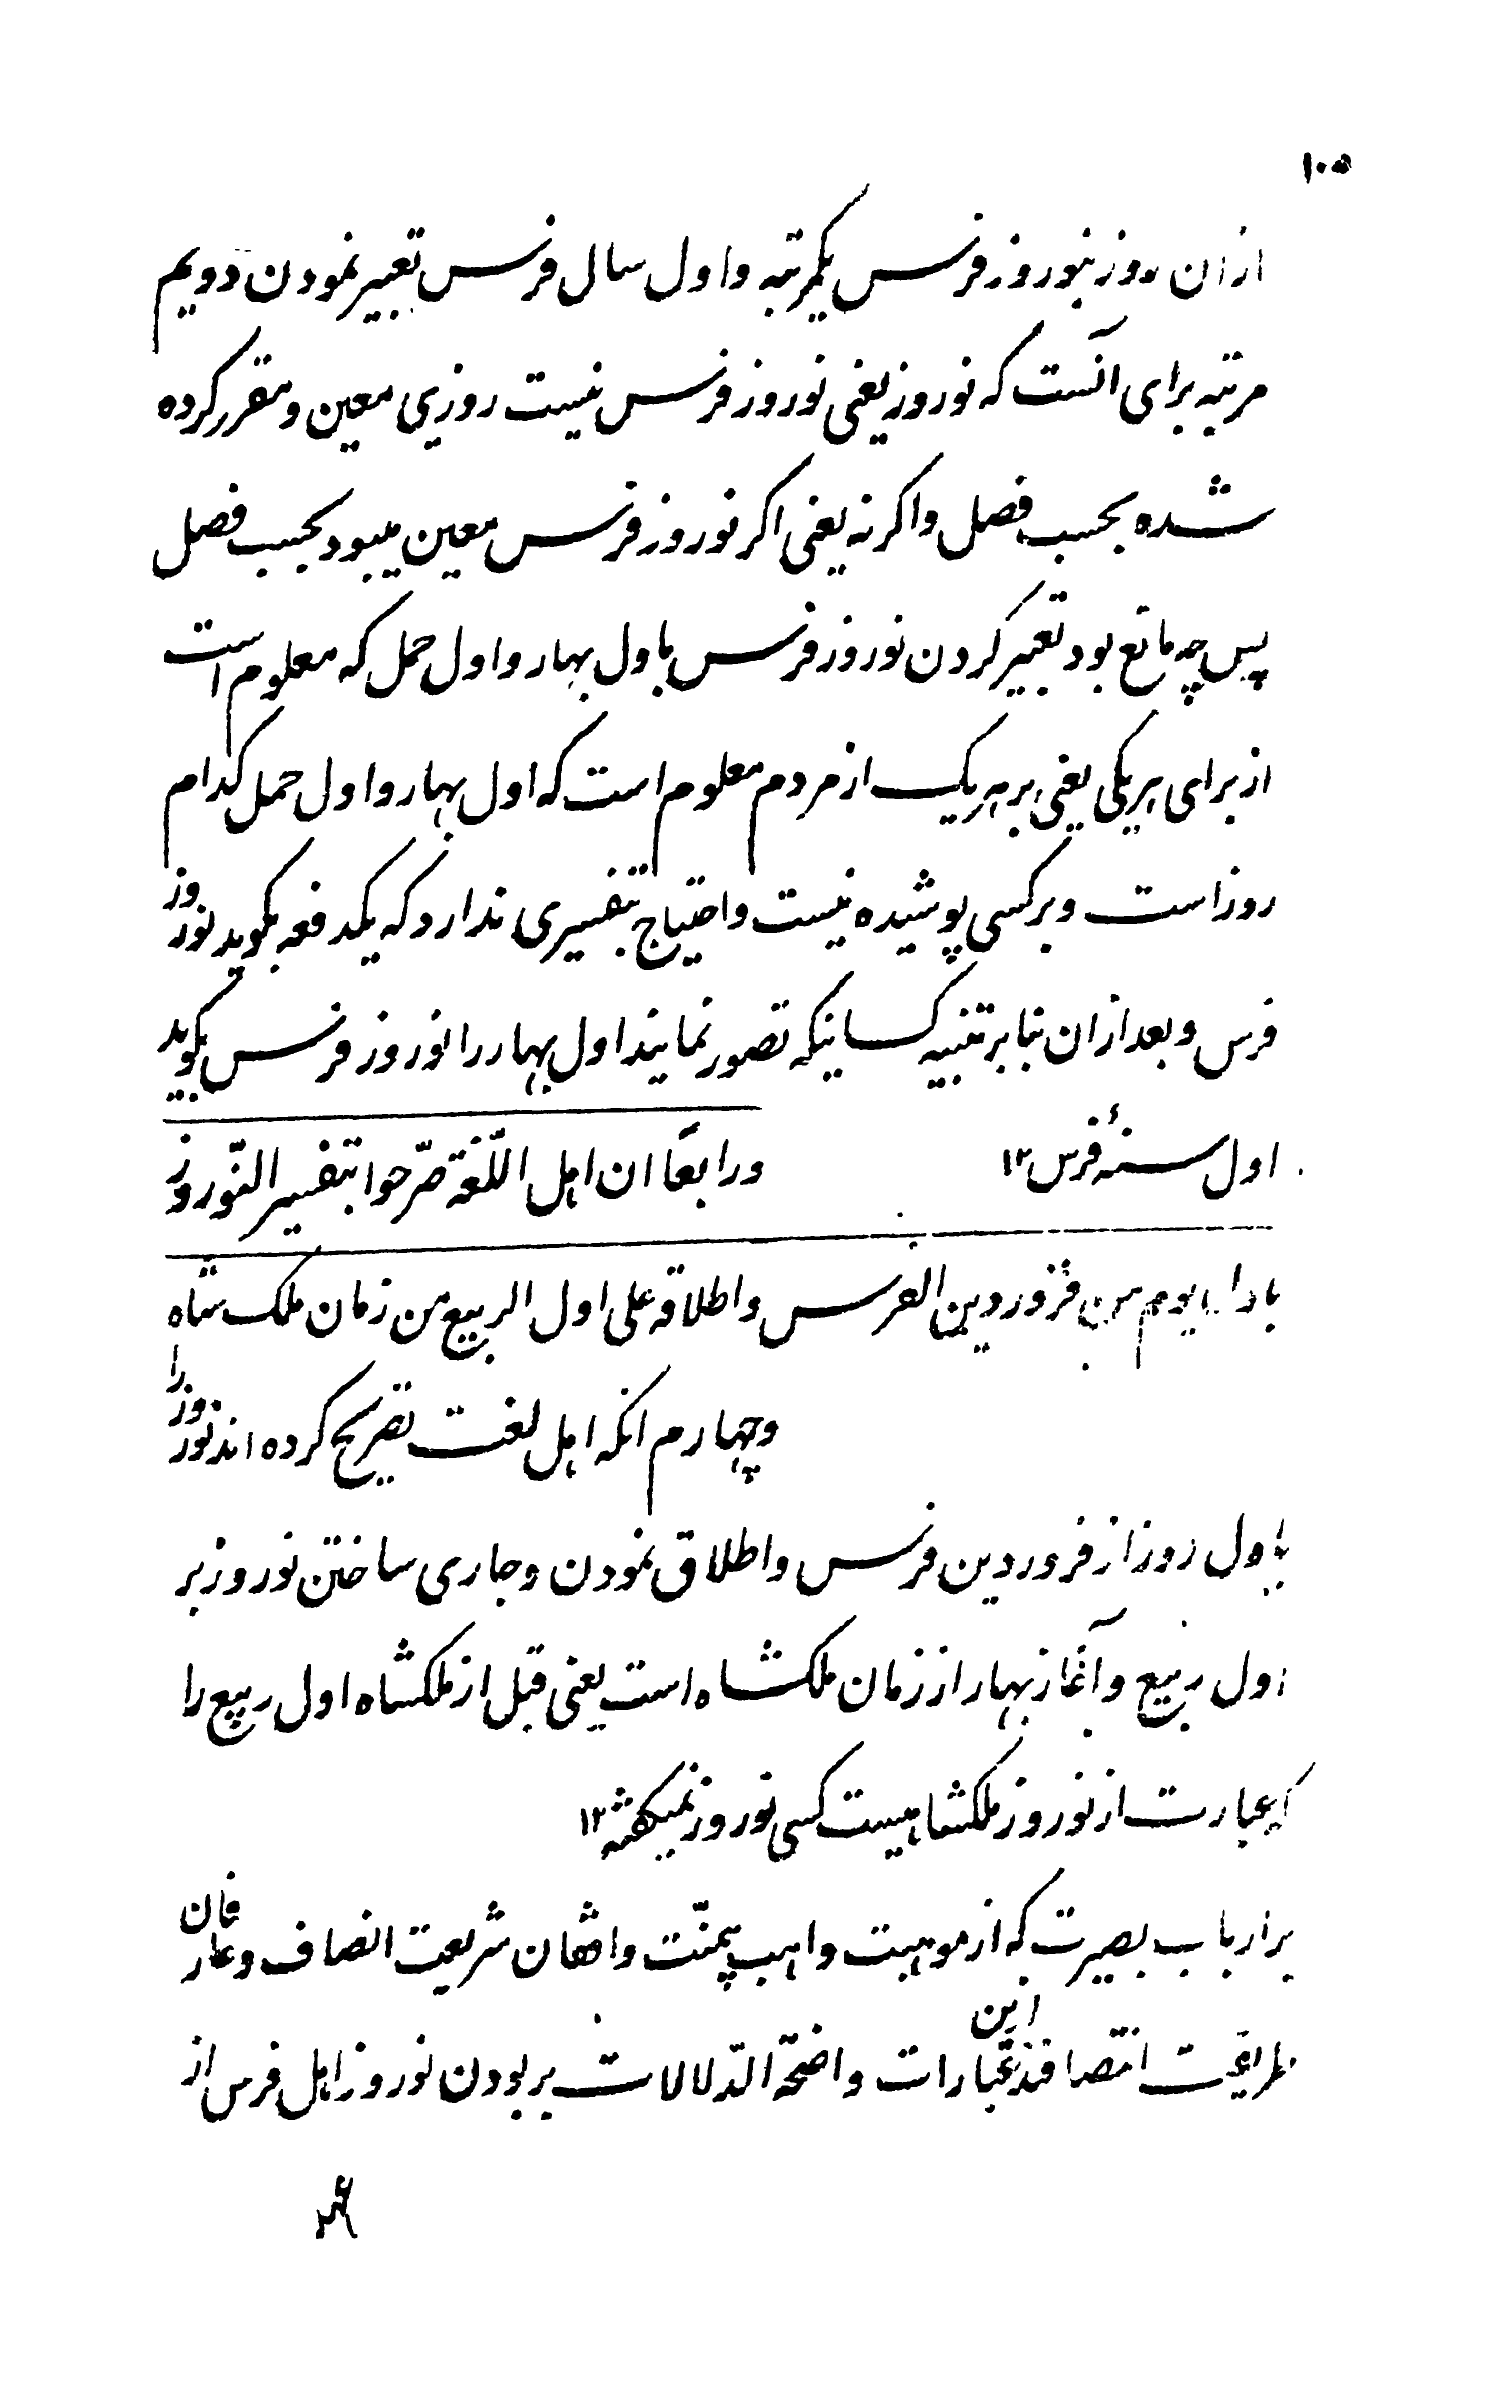 ۱۰۵
ازان روز بنوروز فرس یکمرتبه و اول سال فرس تعبیر نمودن دویم
مرتبه برای آنست که نوروز یعنی نوروز فرس نیست روزی معین و مقرر کرده
شده بحسب فصل و اکر نه یعنی اکر نوروز فرس معین میبود بحسب فصل
پس چه مانع بود تعبیر کردن نوروز فرس باول بهار و اول حمل که معلوم است
از برای هریکی یعنی بر هریک از مردم معلوم است که اول بهار و اول حمل کدام
روز است و بر کسی پوشیده نیست و احتیاج بتفسیری ندارد که یکدفعه بکوید نوروز
فرس و بعد ازان بنا بر تنبیه کسانیکه تصور نمایند اول بهار را نوروز فرس بکوید
اول سنهٔ فرس ۱۲ ورابعًا ان اهل اللّغة صرّحوا بتفسیر النّوروز
باول یوم من فروردین الفرس واطلاقه علی اول الربیع من زمان ملک شاه
وچهارم انکه اهل لغت تصریح کرده اند نوروز را
باول روز از فروردین فرس و اطلاق نمودن و جاری ساختن نوروز بر
اول ربیع و آغاز بهار از زمان ملکشاه است یعنی قبل از ملکشاه اول ربیع را
که عبارت از نوروز ملکشاهیست کسی نوروز نمیکفته ۱۲
بر ارباب بصیرت که از موهبت واهب بیمنّت واقفان شریعت انصاف و عارفان
طریقت انتصافند این عبارات واضحة الدّلالات بر بودن نوروز اهل فرس از